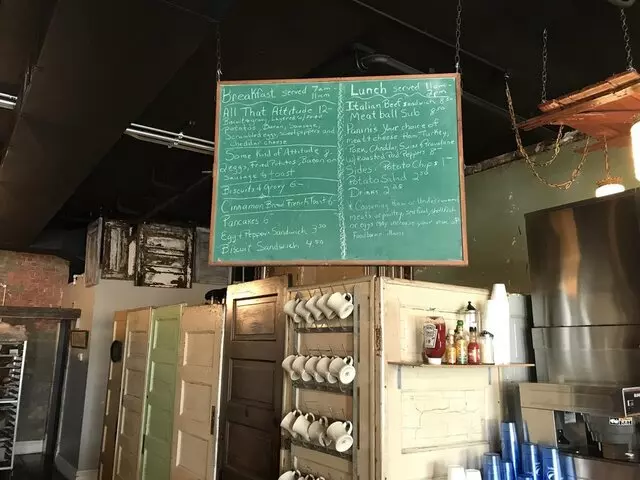 Breakfast served 7am-
11am
All That Attitude 12-
Potatoes, Bacon, Sausage,
Scrambled eggs, sweet peppers and
cheddar cheese
Some Kind of Attitude 7
2 eggs, Fried Potatoes, Bacon or
Sausage & toast
Biscuits & Gravy 6-
Cinnamon Bread French Toast 6-
Pancakes 6
Egg & Pepper Sandwich 3.50
Biscuit Sandwich 4.50
Lunch served
Italian Beef sandwich 8.50
Meat ball Sub
Paninis your choice of
meat & cheese Ham, Turkey,
Tuna, Cheddar, Swiss & Provolone
w/ Roasted Red Peppers 8-
Sides: Potato Chips 1-
Potato Salad 2.50
Drinks 2.00
* Consuming Raw or Undercooked
meats or poultry, seafood, shellfish
or eggs may increase your risk of
Foodborne illness